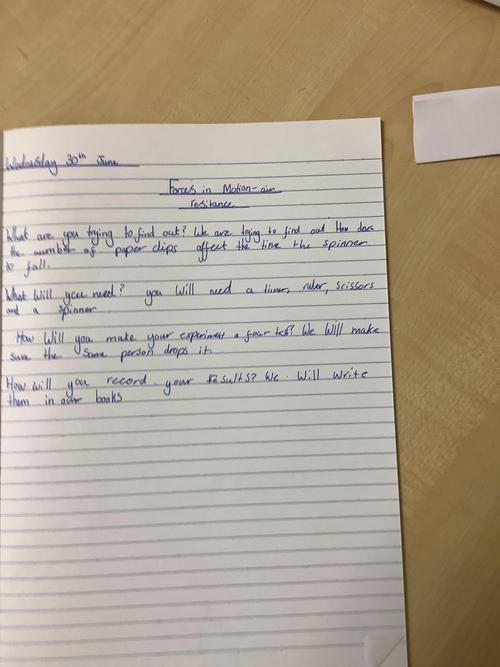 Wednesday 30th June
Forces in Motion-air
resitance
What are you trying to find out? We are trying to find out How does
the number of paper clips affect the time the spinner
to fall.
What Will you need? you Will need a timer, ruler, scissors
and a spinner
How Will you make your experiment a fair test? We Will make
sure the same person drops it.
How will you record your results? We Will write
them in our books